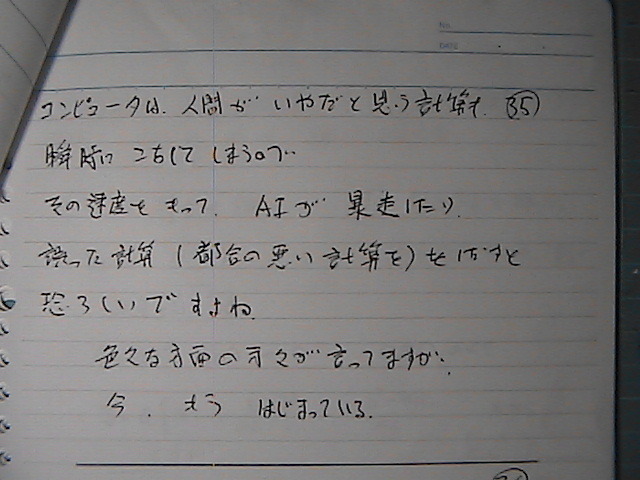 No.
DATE
コンピュータは、人間が いやだと思う計算も、 35
瞬時に こなして しまうので
その速度をもって、 AIが 暴走したり、
誤った計算(都合の悪い計算を)をしだすと
恐ろしいですよね。
色々な方面の方々が言ってますが、
今、もう はじまっている。